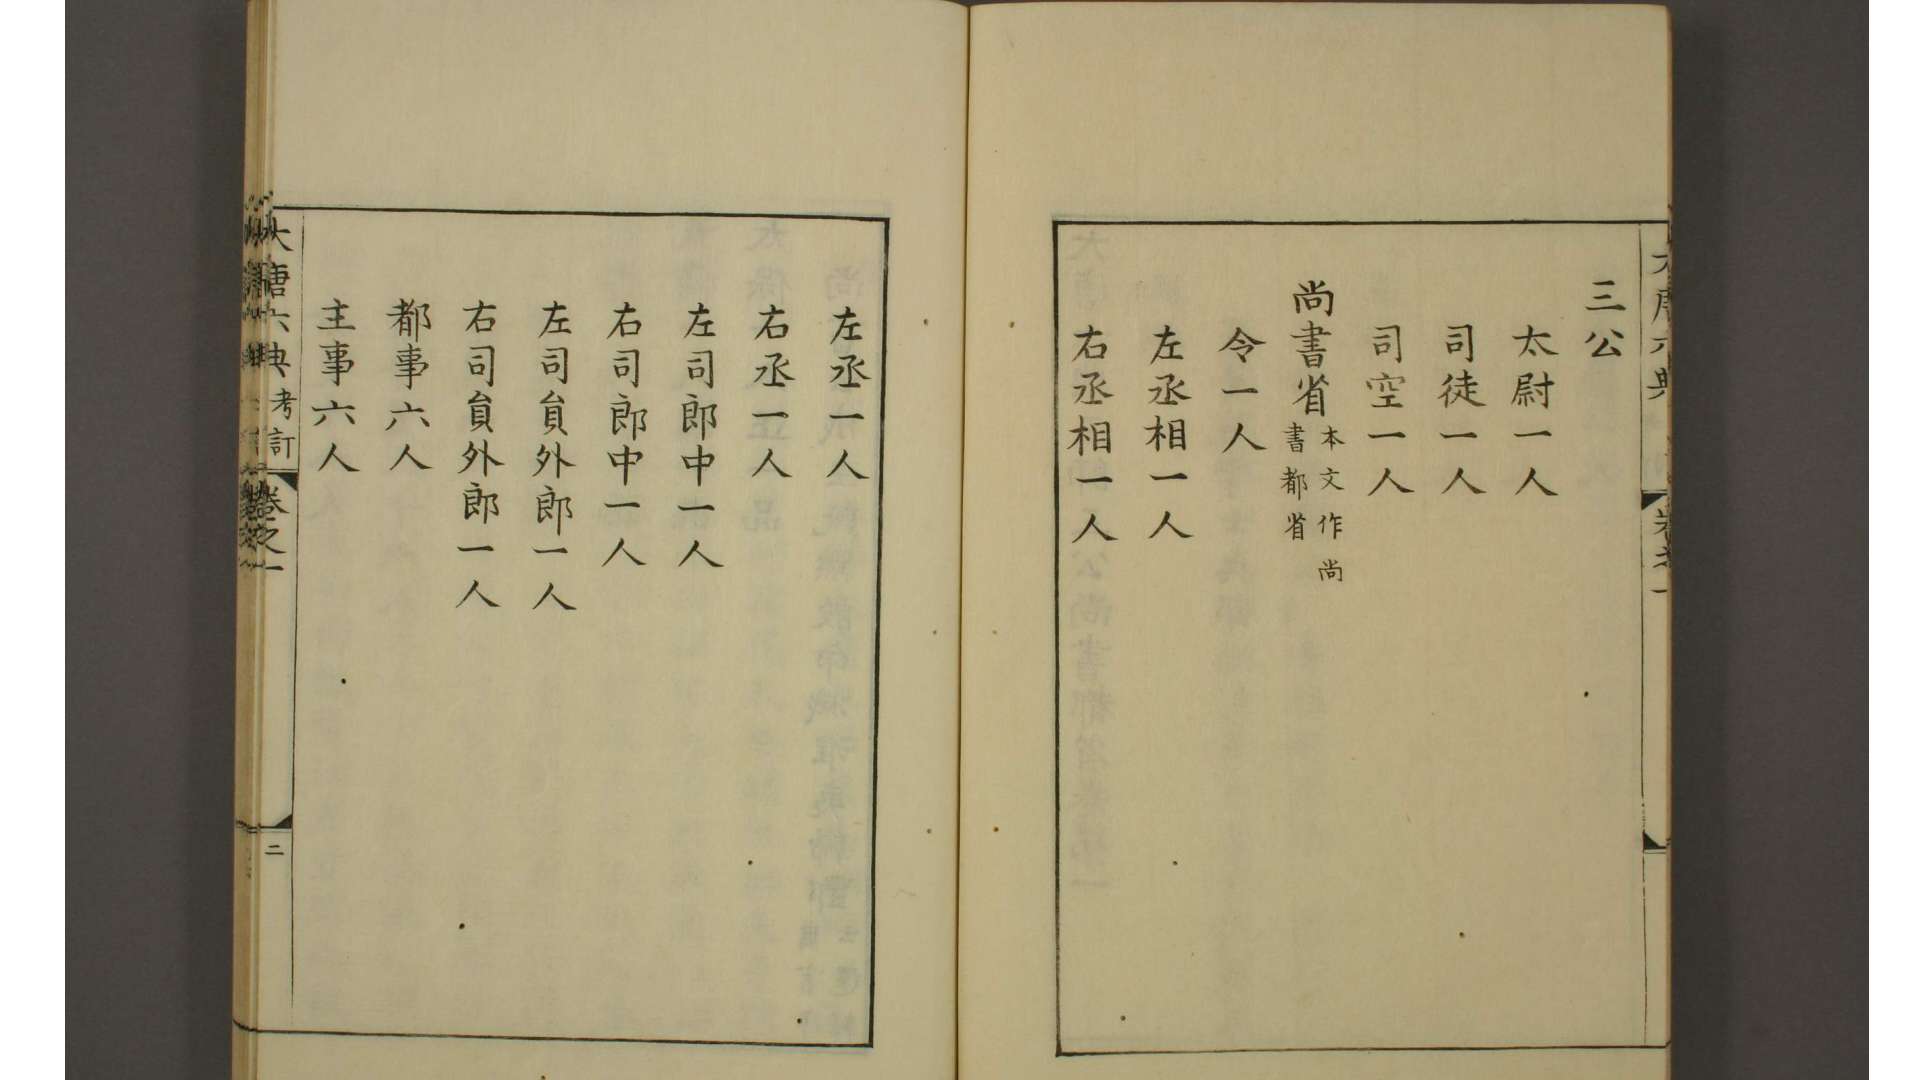 三公
太尉一人
司徒一人
司空一人
尚書省本文作尚
書都省
令一人
左丞相一人
右丞相一人
左丞一人
右丞一人
左司郎中一人
右司郎中一人
左司員外郎一人
右司員外郎一人
都事六人
主事六人
大唐六典考訂 卷之一 二